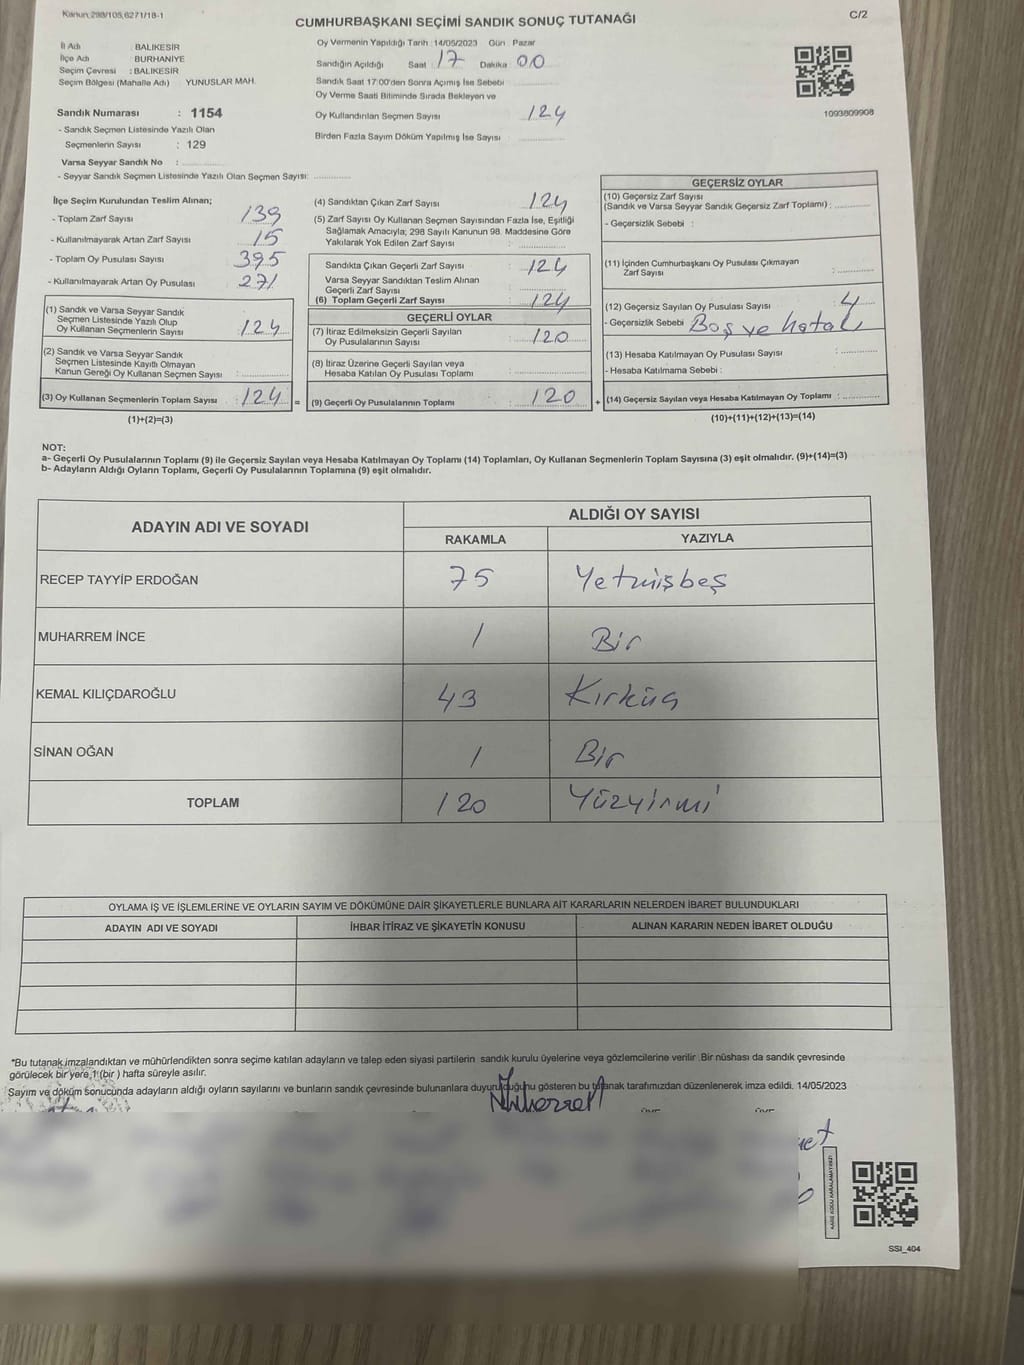 Kanun: 298/105,6271/18-1
CUMHURBAŞKANI SEÇİMİ SANDIK SONUÇ TUTANAĞI
C/2
İl Adı : BALIKESİR
İlçe Adı : BURHANİYE
Seçim Çevresi : BALIKESİR
Seçim Bölgesi (Mahalle Adı) YUNUSLAR MAH.
Sandık Numarası : 1154
- Sandık Seçmen Listesinde Yazılı Olan
Seçmenlerin Sayısı : 129
Varsa Seyyar Sandık No : ............
- Seyyar Sandık Seçmen Listesinde Yazılı Olan Seçmen Sayısı: ............
Oy Vermenin Yapıldığı Tarih :14/05/2023 Gün : Pazar
Sandığın Açıldığı Saat 17 Dakika 00
Sandık Saat 17:00'den Sonra Açımış İse Sebebi ............
Oy Verme Saati Bitiminde Sırada Bekleyen ve
Oy Kullandırılan Seçmen Sayısı 124
Birden Fazla Sayım Döküm Yapılmış İse Sayısı ............
1093809908
İlçe Seçim Kurulundan Teslim Alınan;
- Toplam Zarf Sayısı 139
- Kullanılmayarak Artan Zarf Sayısı 15
- Toplam Oy Pusulası Sayısı 395
- Kullanılmayarak Artan Oy Pusulası 271
(1) Sandık ve Varsa Seyyar Sandık
Seçmen Listesinde Yazılı Olup
Oy Kullanan Seçmenlerin Sayısı : 124
(2) Sandık ve Varsa Seyyar Sandık
Seçmen Listesinde Kayıtlı Olmayan
Kanun Gereği Oy Kullanan Seçmen Sayısı : ............
(3) Oy Kullanan Seçmenlerin Toplam Sayısı : 124 =
(1)+(2)=(3)
(4) Sandıktan Çıkan Zarf Sayısı 124
(5) Zarf Sayısı Oy Kullanan Seçmen Sayısından Fazla İse, Eşitliği
Sağlamak Amacıyla; 298 Sayılı Kanunun 98. Maddesine Göre
Yakılarak Yok Edilen Zarf Sayısı : ............
Sandıkta Çıkan Geçerli Zarf Sayısı : 124
Varsa Seyyar Sandıktan Teslim Alınan
Geçerli Zarf Sayısı : ............
(6) Toplam Geçerli Zarf Sayısı : 124
GEÇERLİ OYLAR
(7) İtiraz Edilmeksizin Geçerli Sayılan
Oy Pusulalarının Sayısı : 120
(8) İtiraz Üzerine Geçerli Sayılan veya
Hesaba Katılan Oy Pusulası Toplamı : ............
(9) Geçerli Oy Pusulalarının Toplamı : 120 +
GEÇERSİZ OYLAR
(10) Geçersiz Zarf Sayısı
(Sandık ve Varsa Seyyar Sandık Geçersiz Zarf Toplamı) : ............
- Geçersizlik Sebebi :
(11) İçinden Cumhurbaşkanı Oy Pusulası Çıkmayan
Zarf Sayısı : ............
(12) Geçersiz Sayılan Oy Pusulası Sayısı : 4
- Geçersizlik Sebebi : Boş ve hatalı
(13) Hesaba Katılmayan Oy Pusulası Sayısı : ............
- Hesaba Katılmama Sebebi :
(14) Geçersiz Sayılan veya Hesaba Katılmayan Oy Toplamı : ............
(10)+(11)+(12)+(13)=(14)
NOT:
a- Geçerli Oy Pusulalarının Toplamı (9) ile Geçersiz Sayılan veya Hesaba Katılmayan Oy Toplamı (14) Toplamları, Oy Kullanan Seçmenlerin Toplam Sayısına (3) eşit olmalıdır. (9)+(14)=(3)
b- Adayların Aldığı Oyların Toplamı, Geçerli Oy Pusulalarının Toplamına (9) eşit olmalıdır.
ADAYIN ADI VE SOYADI
ALDIĞI OY SAYISI
RAKAMLA YAZIYLA
RECEP TAYYİP ERDOĞAN 75 Yetmişbeş
MUHARREM İNCE 1 Bir
KEMAL KILIÇDAROĞLU 43 Kırküç
SİNAN OĞAN 1 Bir
TOPLAM 120 Yüzyirmi
OYLAMA İŞ VE İŞLEMLERİNE VE OYLARIN SAYIM VE DÖKÜMÜNE DAİR ŞİKAYETLERLE BUNLARA AİT KARARLARIN NELERDEN İBARET BULUNDUKLARI
ADAYIN ADI VE SOYADI İHBAR İTİRAZ VE ŞİKAYETİN KONUSU ALINAN KARARIN NEDEN İBARET OLDUĞU
*Bu tutanak imzalandıktan ve mühürlendikten sonra seçime katılan adayların ve talep eden siyasi partilerin sandık kurulu üyelerine veya gözlemcilerine verilir. Bir nüshası da sandık çevresinde
görülecek bir yere 1 (bir ) hafta süreyle asılır.
Sayım ve döküm sonucunda adayların aldığı oyların sayılarını ve bunların sandık çevresinde bulunanlara duyurulduğunu gösteren bu tutanak tarafımızdan düzenlenerek imza edildi. 14/05/2023
KARE KODU KARALAMAYINIZ!
SSI_404